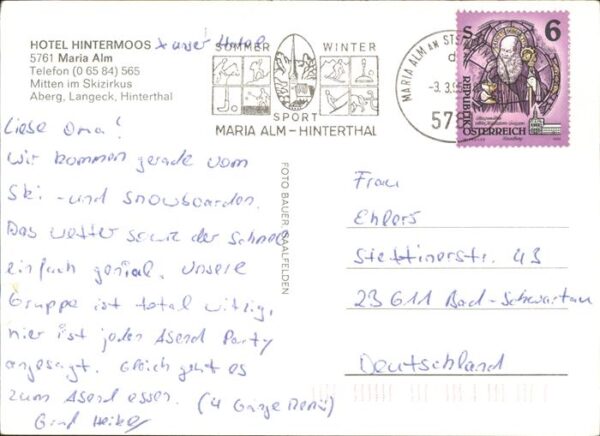 HOTEL HINTERMOOS x unser Hotel
5761 Maria Alm
Telefon (0 65 84) 565
Mitten im Skizirkus
Aberg, Langeck, Hinterthal
SOMMER WINTER
SPORT
MARIA ALM - HINTERTHAL
MARIA ALM AM ST
-3.3.9
578
S 6
REPUBLIK
ÖSTERREICH
Liebe Oma!
Wir kommen gerade vom
Ski- und Snowboarden.
Das Wetter sowie der Schnee
einfach genial. Unsere
Gruppe ist total witzig,
hier ist jeden Abend Party
angesagt. Gleich geht es
zum Abendessen. (4 Gänge Menü)
Gruß Heike
FOTO BAUER SAALFELDEN
Frau
Ehlers
Stettinerstr. 43
23611 Bad-Schwartau
Deutschland